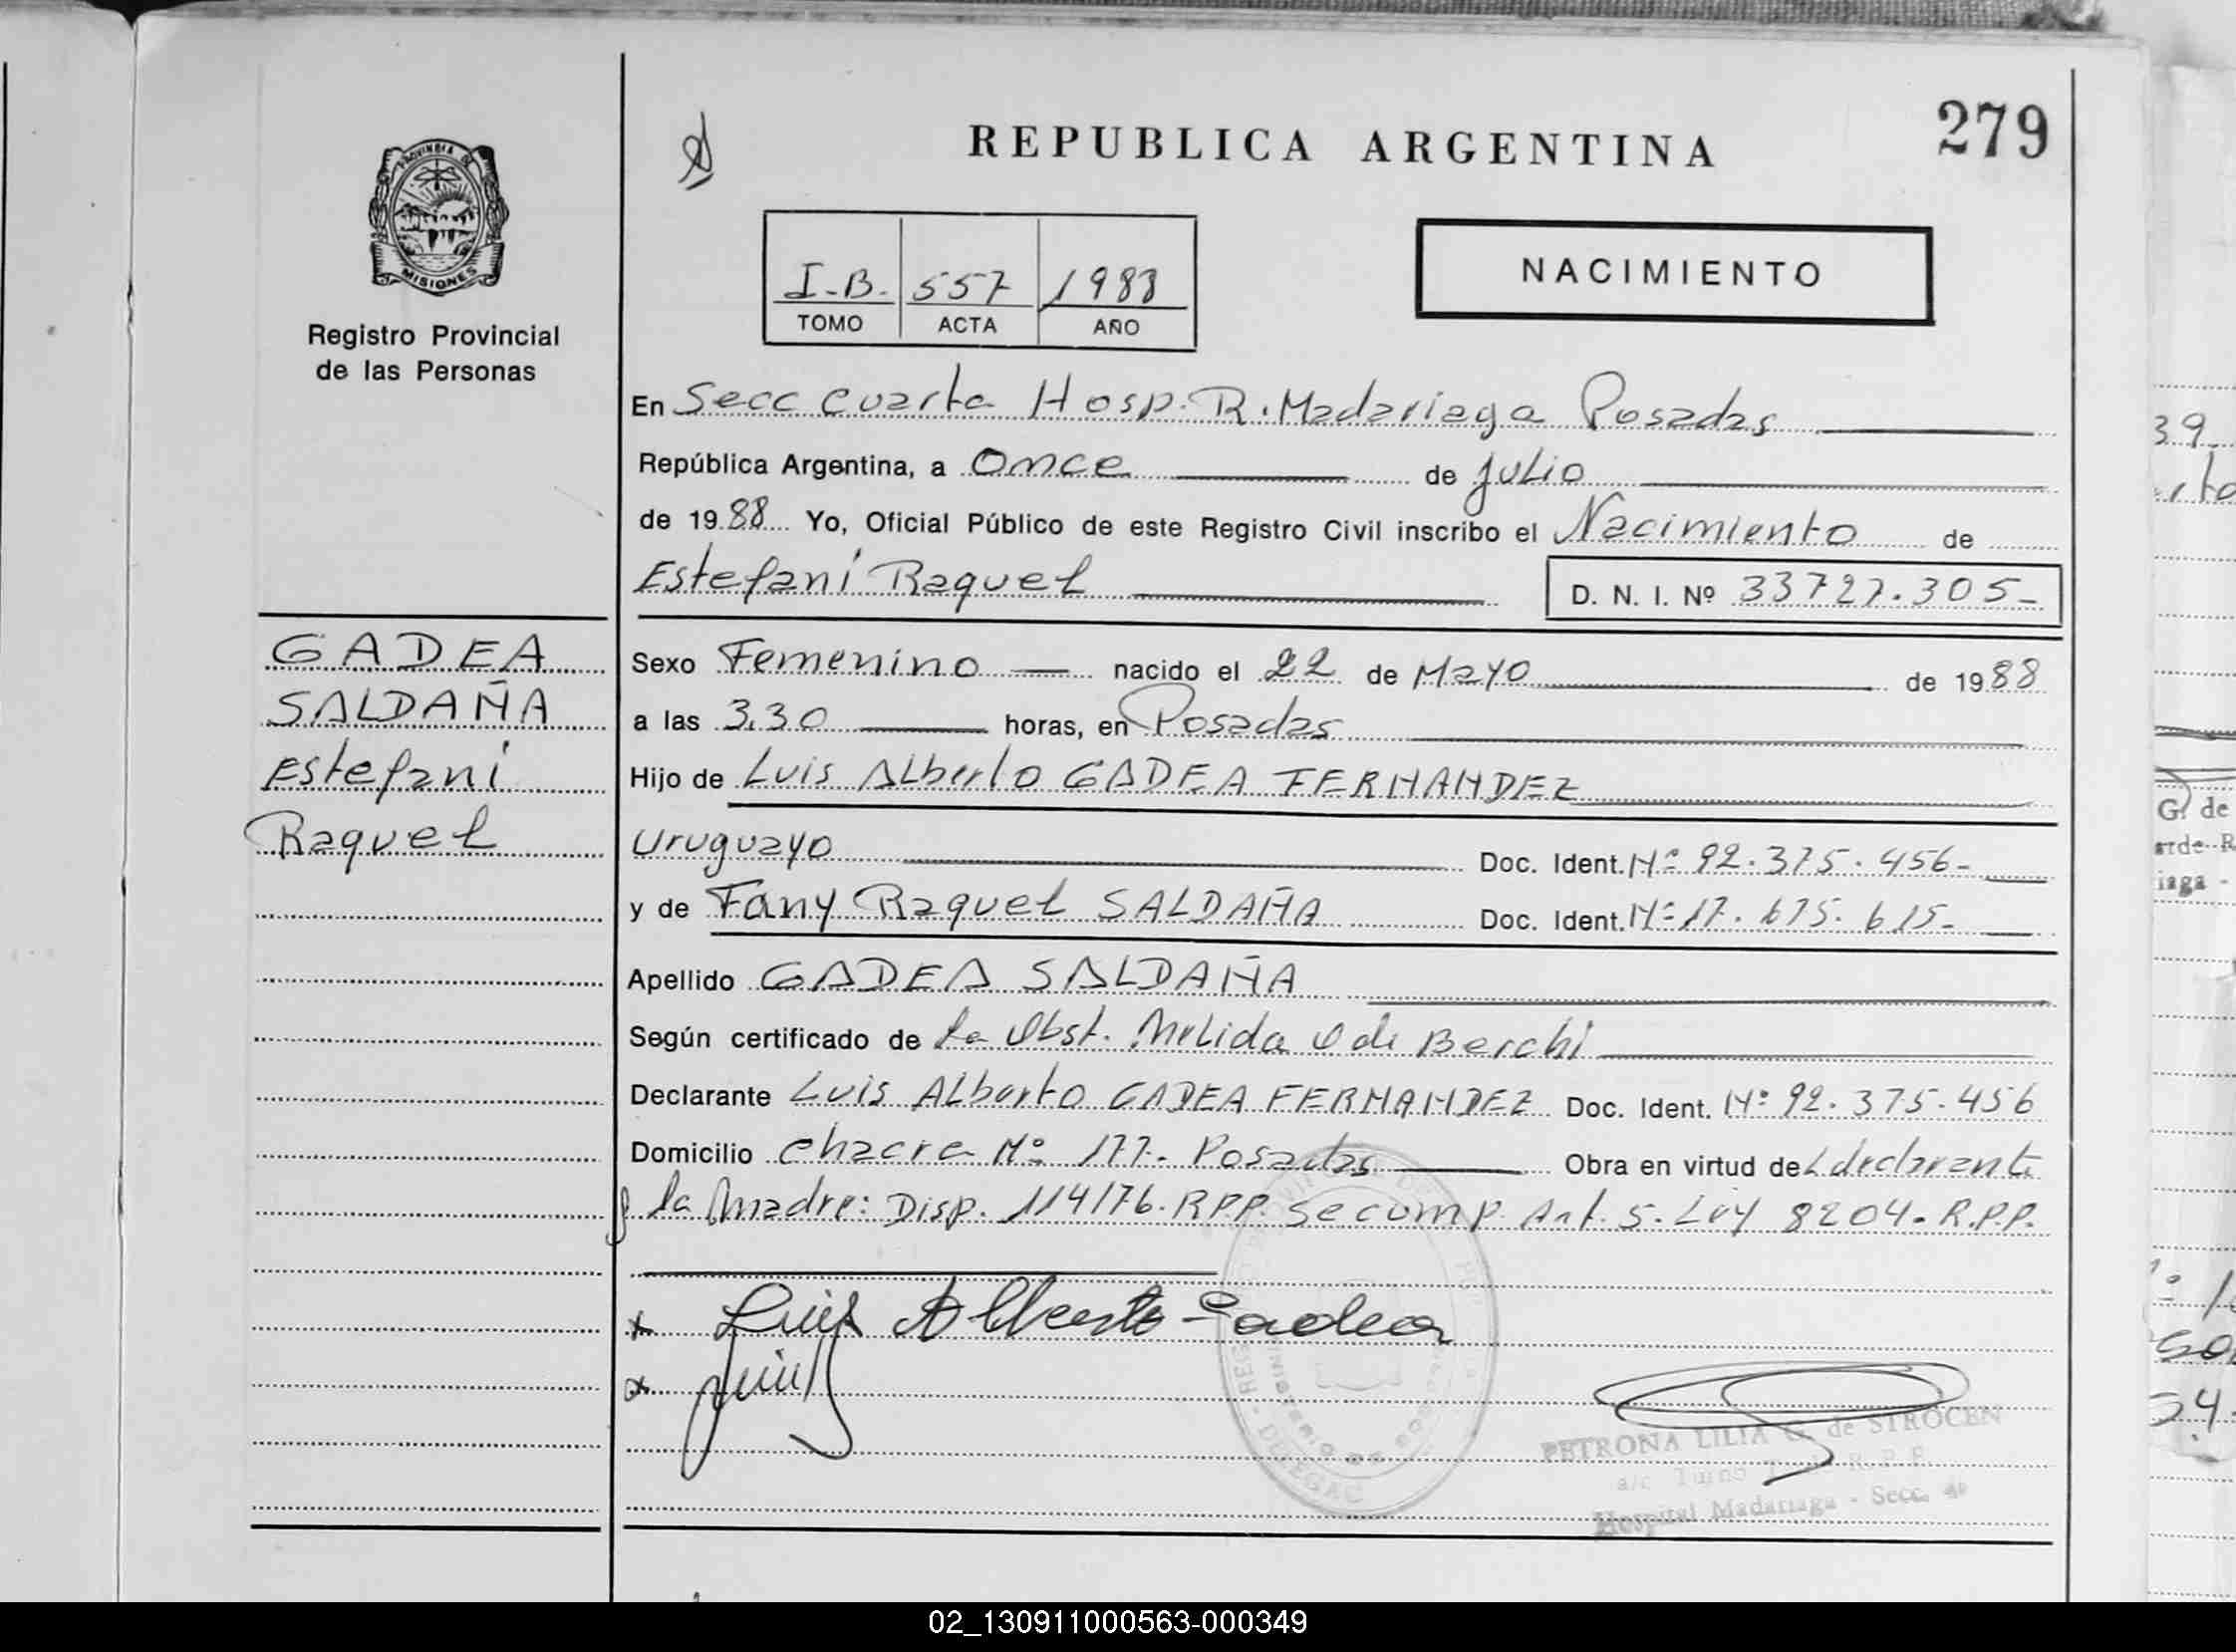 REPUBLICA ARGENTINA
279
PROVINCIA DE
MISIONES
Registro Provincial
de las Personas
I-B. 557 1988
TOMO ACTA AÑO
NACIMIENTO
En Secc Cuarta Hosp. R. Madariaga Posadas
República Argentina, a Once de Julio
de 1988 Yo, Oficial Público de este Registro Civil inscribo el Nacimiento de
Estefani Raquel D. N. I. Nº 33727.305-
GADEA
SALDAÑA
Estefani
Raquel
Sexo Femenino nacido el 22 de Mayo de 1988
a las 3.30 horas, en Posadas
Hijo de Luis Alberto GADEA FERNANDEZ
Uruguayo Doc. Ident. Nº 92.375.456-
y de Fany Raquel SALDAÑA Doc. Ident. Nº 17.675.615-
Apellido GADEA SALDAÑA
Según certificado de la Obst. Nelida O de Berchi
Declarante Luis Alberto GADEA FERNANDEZ Doc. Ident. Nº 92.375.456
Domicilio Chacra Nº 177. Posadas Obra en virtud del declarante
y la Madre: Disp. 114/76. R.P.P. Se comp. Art. 5. Ley 8204. R.P.P.
x Luis Alberto Gadea
x
PETRONA LILIA G. de STROCEN
a/c Turno Tarde R. P. P.
Hospital Madariaga - Secc. 4º
39
G. de
arde R
iaga -
02_130911000563-000349